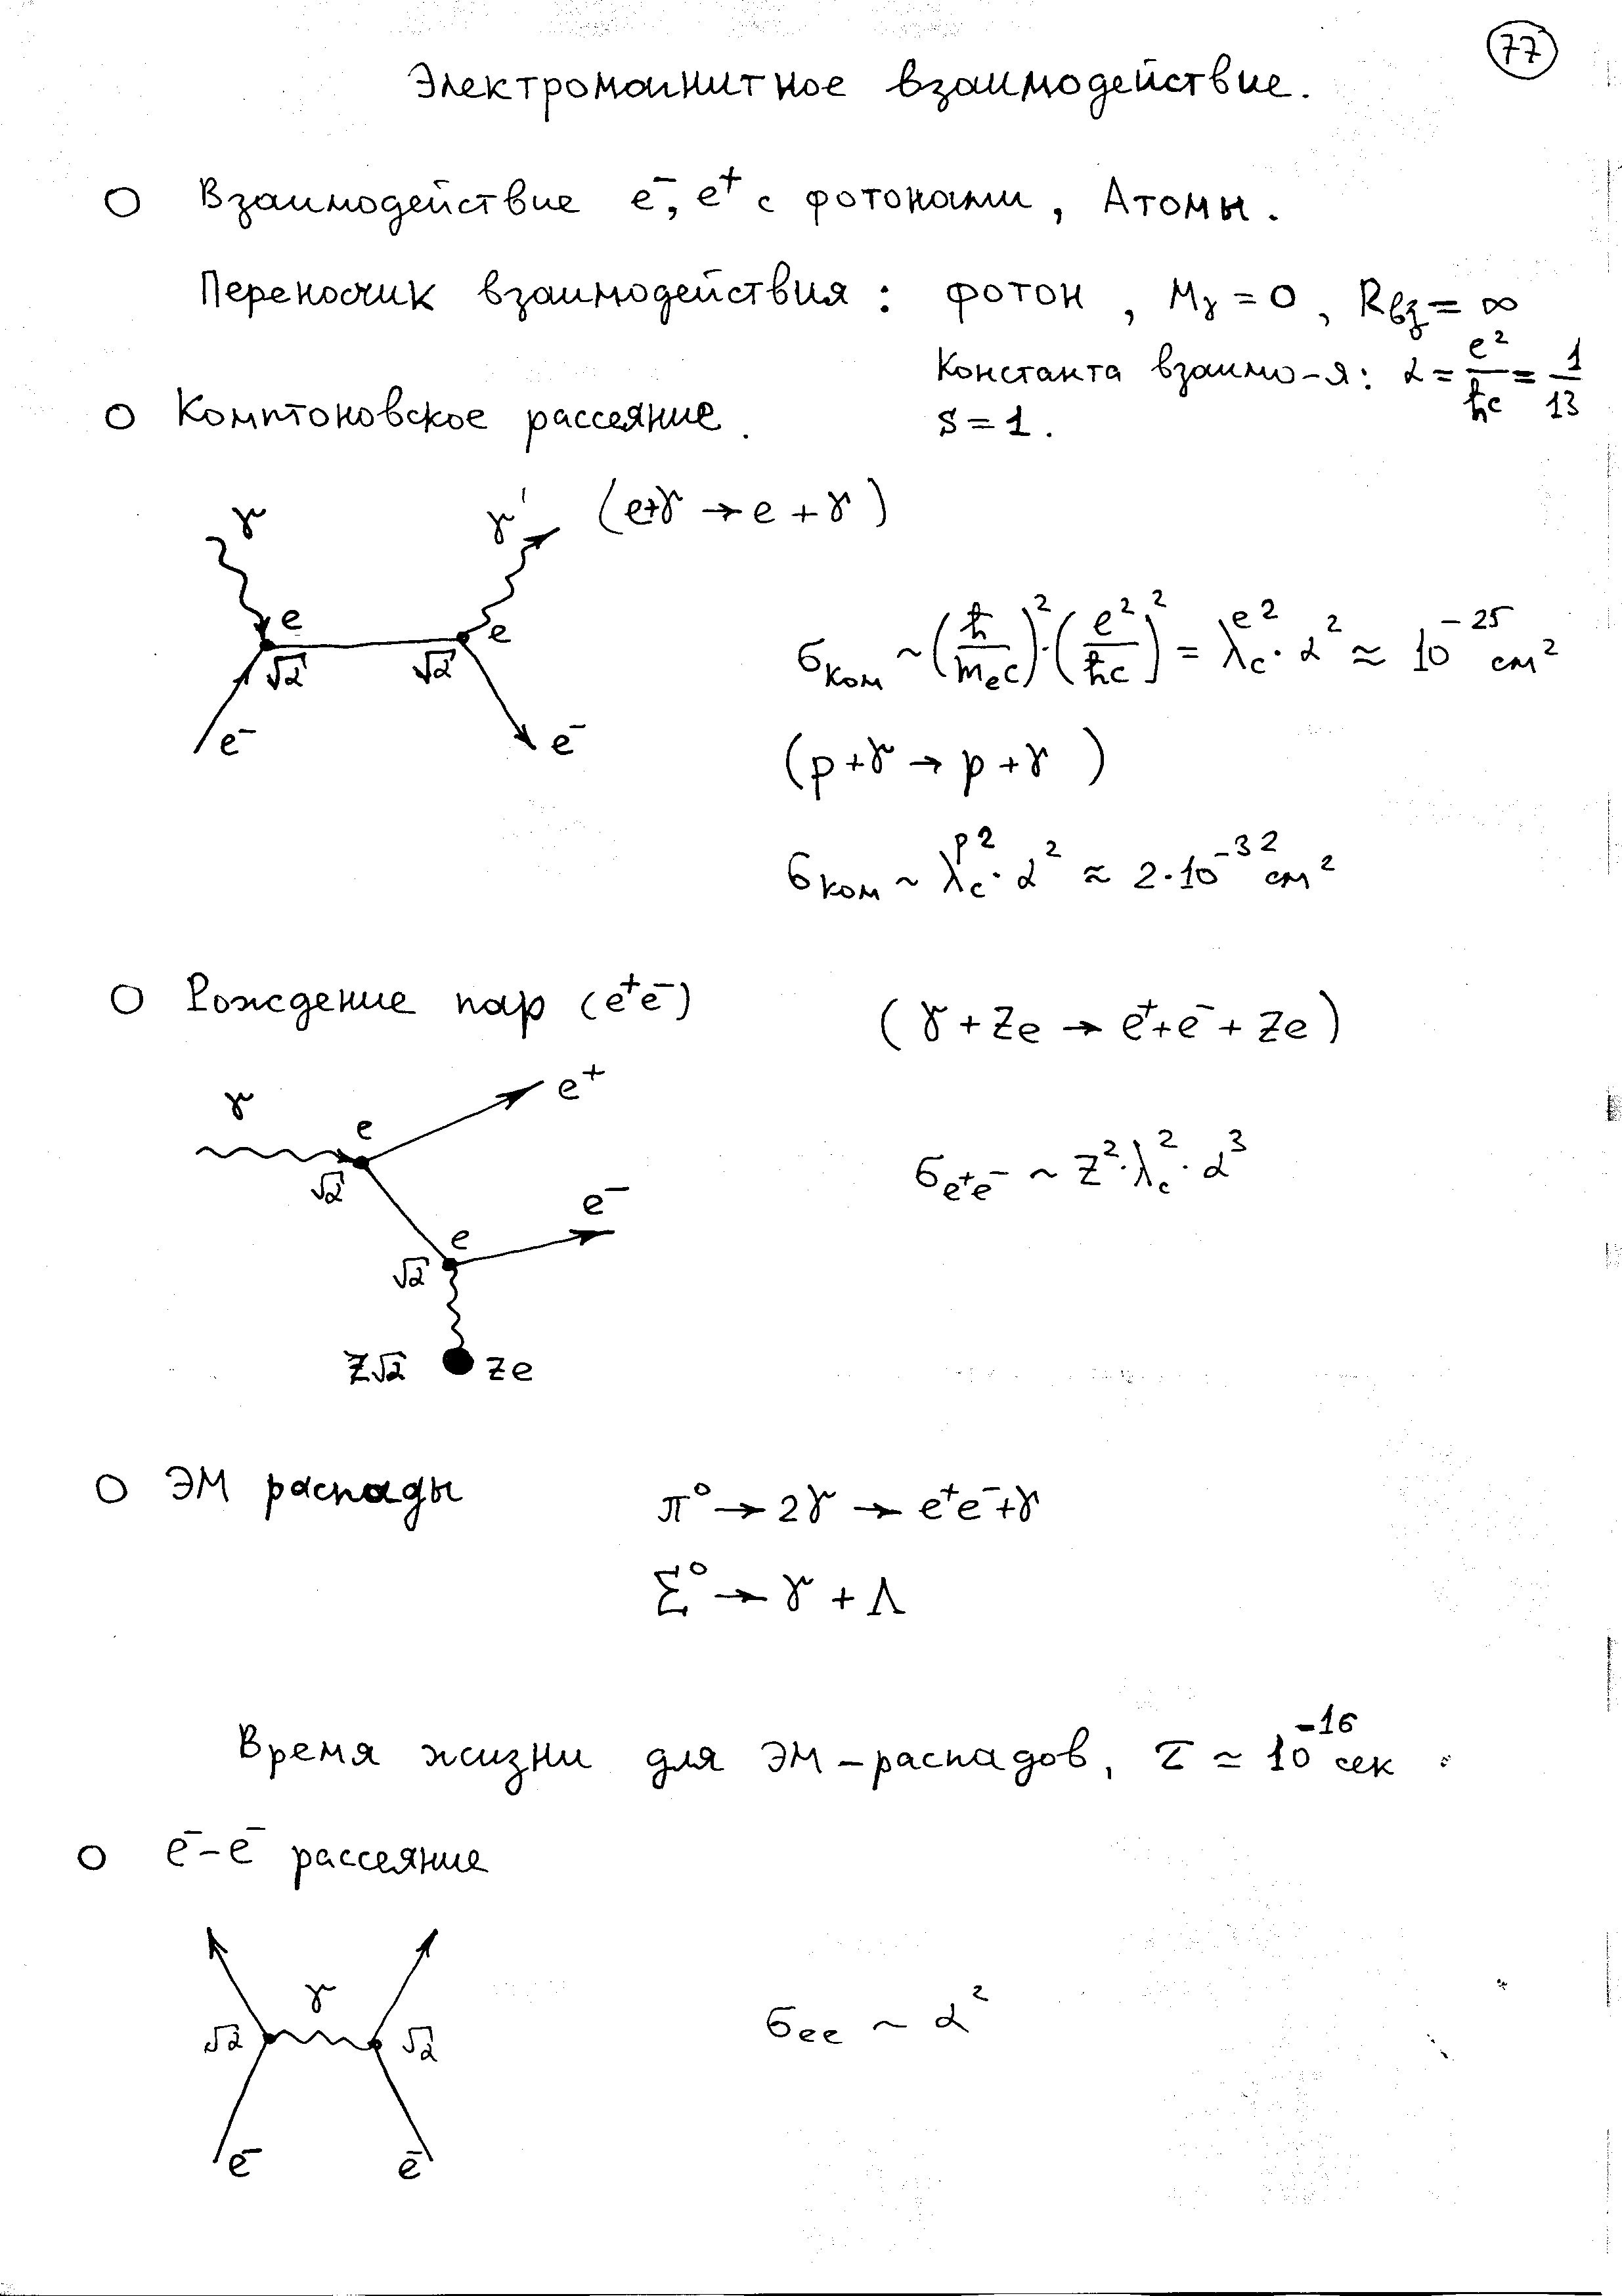 77
Электромагнитное взаимодействие.
○ Взаимодействие e⁻, e⁺ с фотонами, Атомы.
Переносчик взаимодействия: фотон, Mγ = 0, Rвз = ∞
Константа взаимо-я: α = e²/ħc = 1/13
○ Комптоновское рассеяние. S = 1.
γ γ' (e+γ → e + γ)
e e
√α √α
σком ~ (ħ/mₑc)²·(e²/ħc)² = λc^e²·α² ≈ 10⁻²⁵ см²
e⁻ e⁻
(p + γ → p + γ)
σком ~ λc^p²·α² ≈ 2·10⁻³² см²
○ Рождение пар (e⁺e⁻) (γ + Ze → e⁺ + e⁻ + Ze)
γ e e⁺
√α
σe⁺e⁻ ~ Z²·λc²·α³
e e⁻
√α
Z√α Ze
○ ЭМ распады π⁰ → 2γ → e⁺e⁻+γ
Σ⁰ → γ + Λ
Время жизни для ЭМ-распадов, τ ≃ 10⁻¹⁶ сек.
○ e⁻-e⁻ рассеяние
γ
√α √α
σee ~ α²
e⁻ e⁻